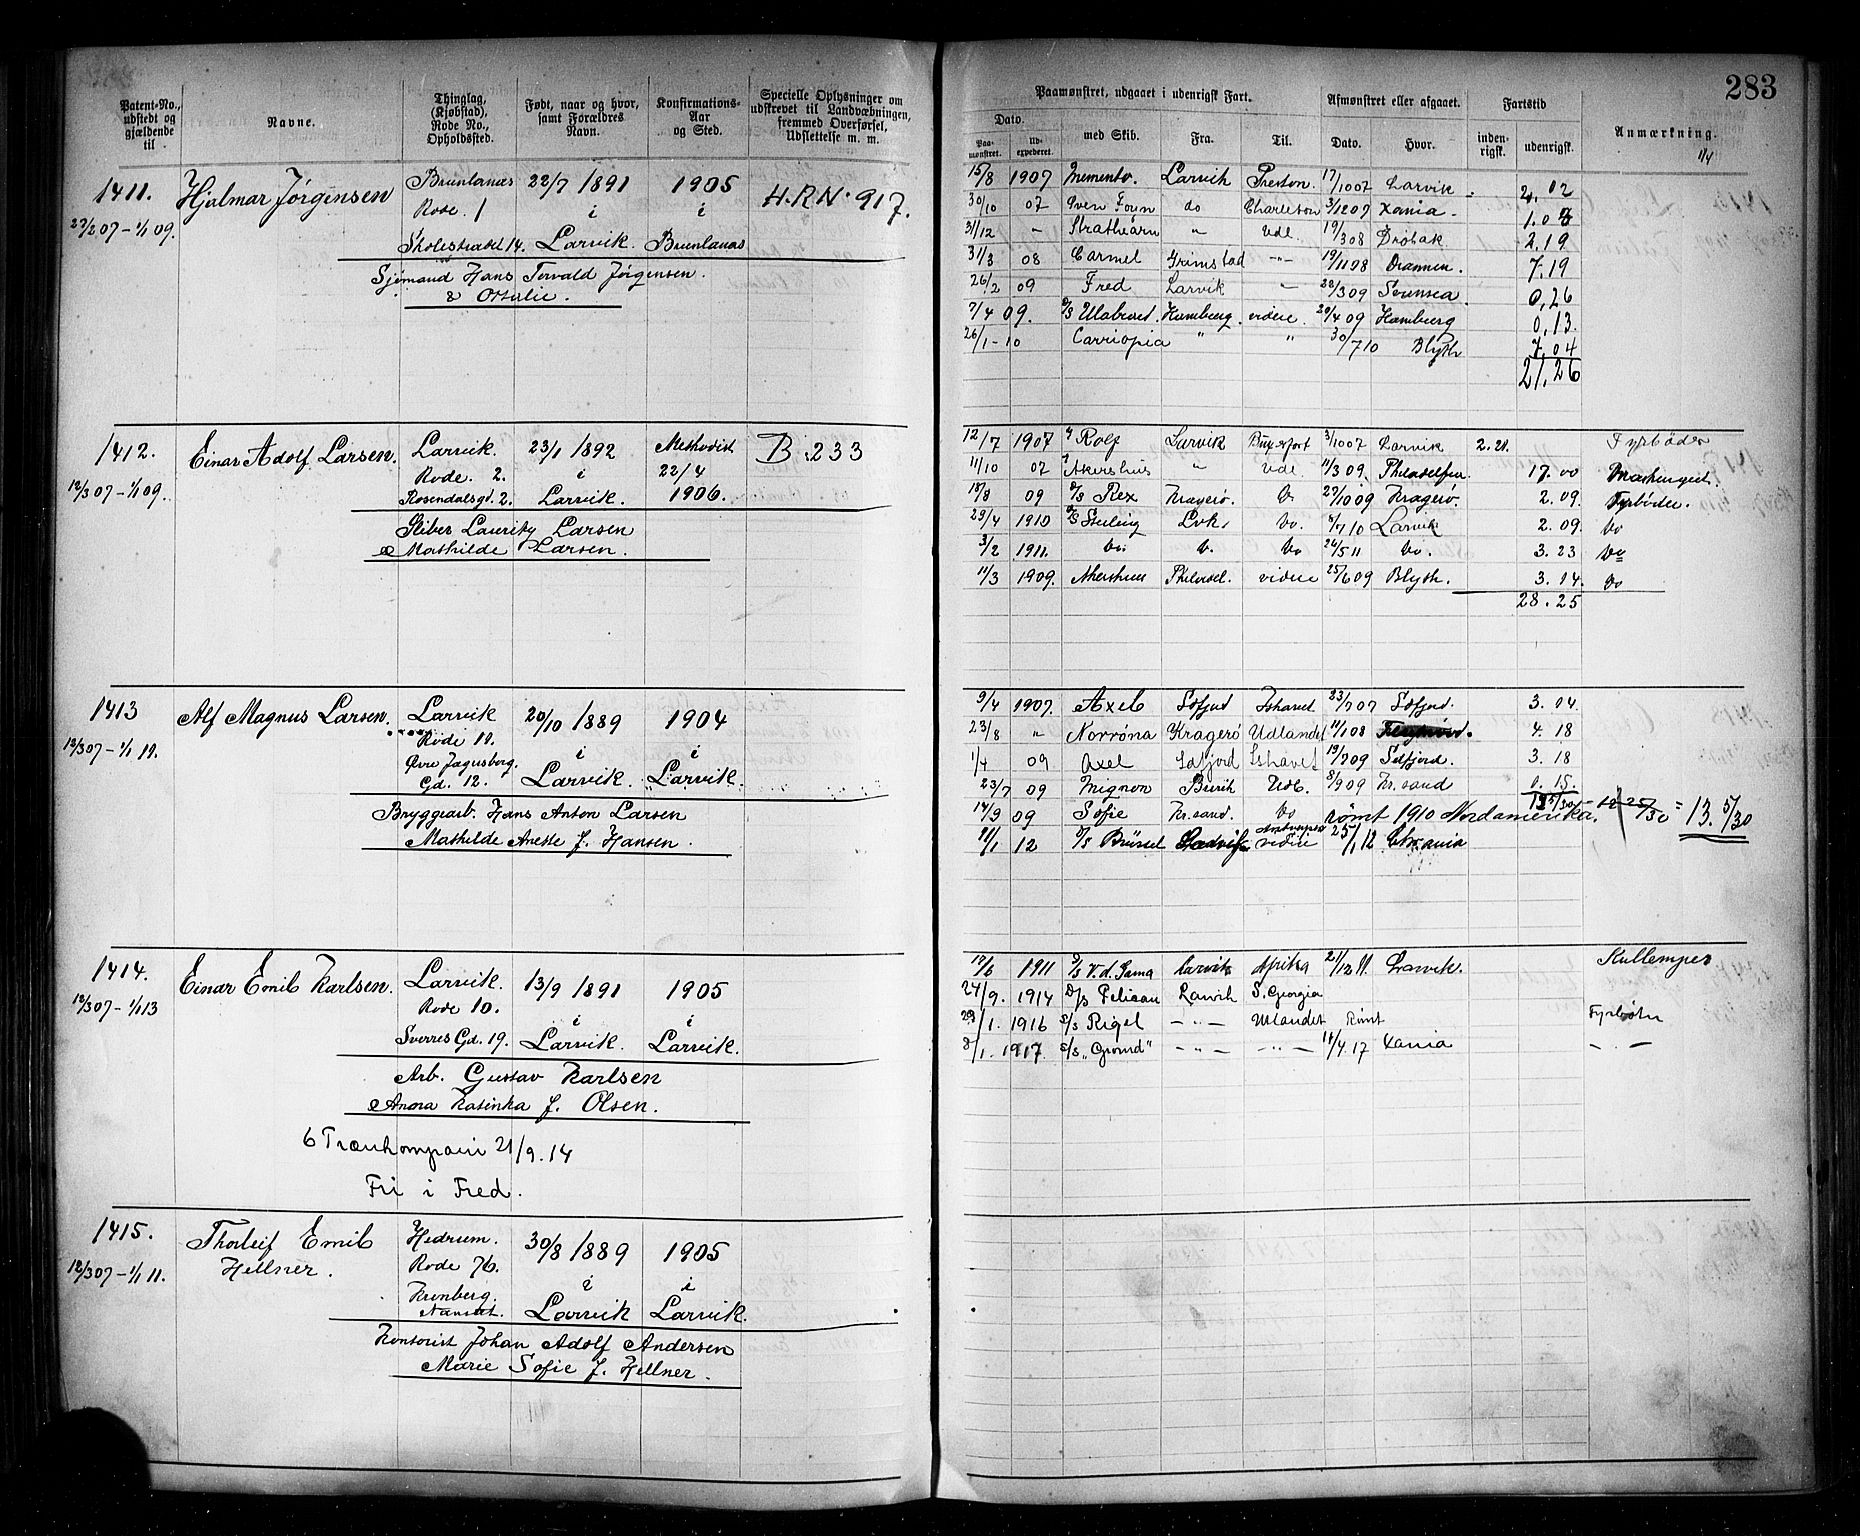 283
Patent-No., udstedt og gjældende til
Navne.
Thinglag, (Kjøbstad), Rode No., Opholdssted.
Født, naar og hvor, samt Forældres Navn.
Konfirmations-Aar og Sted.
Specielle Oplysninger om udskrevet til Landvæbningen, fremmed Overførsel, Udslettelse m. m.
Paamønstret, udgaaet i udenrigsk Fart.
Dato.
Paa-mønstret.
Ud-expederet.
med Skib.
Fra.
Til.
Afmønstret eller afgaaet.
Dato.
Hvor.
Fartstid
inden-rigsk.
udenrigsk.
Anmærkning.
1411. Hjalmar Jørgensen Brunlanæs 22/7 1891 1905 H.R.N. 917.
27/2 07 - 1/1 09. Rode. 1 i i
Skolestræde 14. Larvik. Brunlanæs
Sjømand Hans Torvald Jørgensen
& Othilie.
15/8 1907 Memento. Larvik Preston. 17/10 07 Larvik 2.02
30/10 07 Sven Foyn do Charleston 3/12 07 Xania. 1.03
31/12 " Strathearn " Udl. 19/3 08 Drøbak 2.19
31/3 08 Carmel Grimstad -"- 19/11 08 Drammen. 7.19
26/2 09 Fred Larvik " 22/3 09 Svensea. 0,26
7/4 09. Hamburg. videre. 20/4 09 Hamburg 0,13.
26/1-10 Carriopia " " 30/7 10 Blyth 7.04
21,26
1412. Einar Adolf Larsen. Larvik. 23/1 1892 Methodist B. 233
12/3 07 - 1/1 09. Rode. 2. i 22/4
Rosendalsgd. 2. Larvik. 1906.
Sliber Lauritz Larsen
& Mathilde Larsen.
12/7 1907 Rolf Larvik 3/10 07 Larvik 2.21. Fyrbøder
11/10 07 Akershus " Udl. 11/3 09. Philadelfia 17.00
18/8 09 D/S Rex Kragerø. Do 27/10 09 Kragerø. 2.09. Fyrbøder.
29/4 1910 D/S Sterling Lvk. Do. 7/7 10 Larvik 2.09. Do
3/2 1911. Do. Do. Do 26/5 11 Do. 3.23 Do
11/3 1909. Akershus Philadel. videre 25/6 09 Blyth. 3.14. Do
28.25
1413 Alf Magnus Larsen. Larvik 20/10 1889 1904
12/3 07 - 1/1 11. Rode 11.
Øvre Jegersborg. i i
Gd. 12. Larvik. Larvik.
Bryggearb. Hans Anton Larsen
Mathilde Anette f. Hansen.
9/4 1907. Axel Søfjord Ishavet 23/7 07 Søfjord. 3.14.
23/8 " Norrøna Kragerø Udlandet 11/1 08 4.18
1/4 09 Axel Søfjord Ishavet 19/7 09 Søfjord. 3.18
23/7 09 Mignon Udl. 8/9 09 Kr.sand 0.15.
14/9 09 Sofie Kr.sand. Do rømt 1910 Nordamerika. = 13.5/30
21/1 12 D/S Brüssel Antwerpen videre 25/1 12 Chr.ania
1414. Einar Emil Karlsen. Larvik. 13/9 1891 1905
12/3 07 - 1/1 13 Rode 10. i i
Sverres Gd. 19. Larvik. Larvik.
Arb. Gustav Karlsen
& Anna Katinka f. Olsen.
6 Trænkompani 21/9.14
Fri i Fred.
12/6 1911 D/S V.d. Gama Larvik Afrika 21/12 11. Larvik. Kullemper
24/9. 1914 D/S Pelican Larvik S. Georgia
29/1. 1916 S/S Rigel -"- Utlandet Rømt Fyrbøter
8/1. 1917. S/S "Gromd" -"- -"- 11/4.17 Xania -"-
1415. Thorleif Emil Hedrum. 30/8 1889 1905
12/3 07 - 1/1 11. Hellner. Rode 76. i i
Kronberg. Nanset. Larvik Larvik.
Kontorist Johan Adolf Andersen
Marie Sofie f. Hellner.